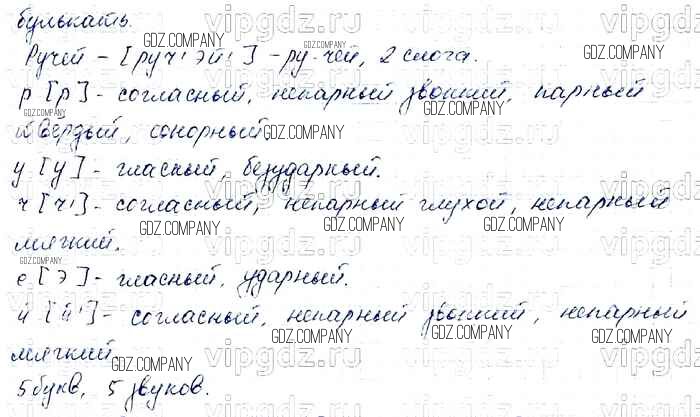 булькать.
Ручей – [руч'эй'] – ру-чей, 2 слога.
р [р] – согласный, непарный звонкий, парный
твёрдый, сонорный.
у [у] – гласный, безударный.
ч [ч'] – согласный, непарный глухой, непарный
мягкий.
е [э] – гласный, ударный.
й [й'] – согласный, непарный звонкий, непарный
мягкий
5 букв, 5 звуков.